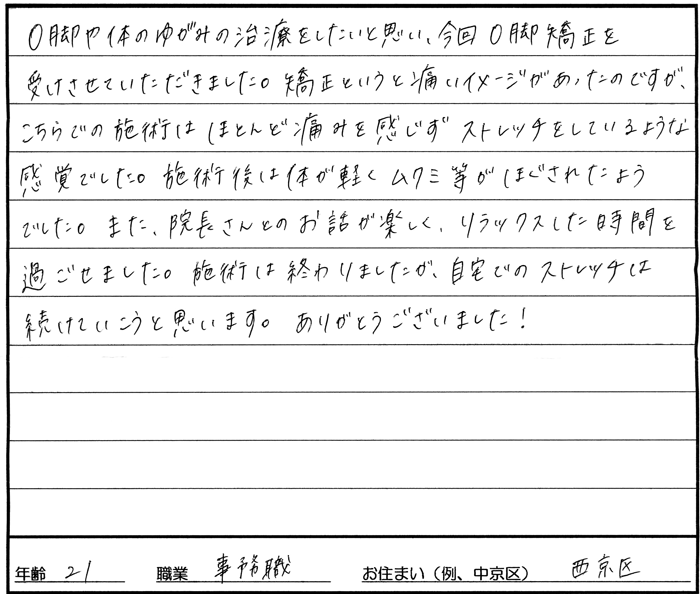 O脚や体のゆがみの治療をしたいと思い、今回O脚矯正を
受けさせていただきました。矯正というと痛いイメージがあったのですが、
こちらでの施術はほとんど痛みを感じず ストレッチをしているような
感覚でした。施術後は体が軽く ムクミ等がほぐされたよう
でした。また、院長さんとのお話が楽しく、リラックスした時間を
過ごせました。施術は終わりましたが、自宅でのストレッチは
続けていこうと思います。ありがとうございました!
年齢 21 職業 事務職 お住まい(例、中京区) 西京区